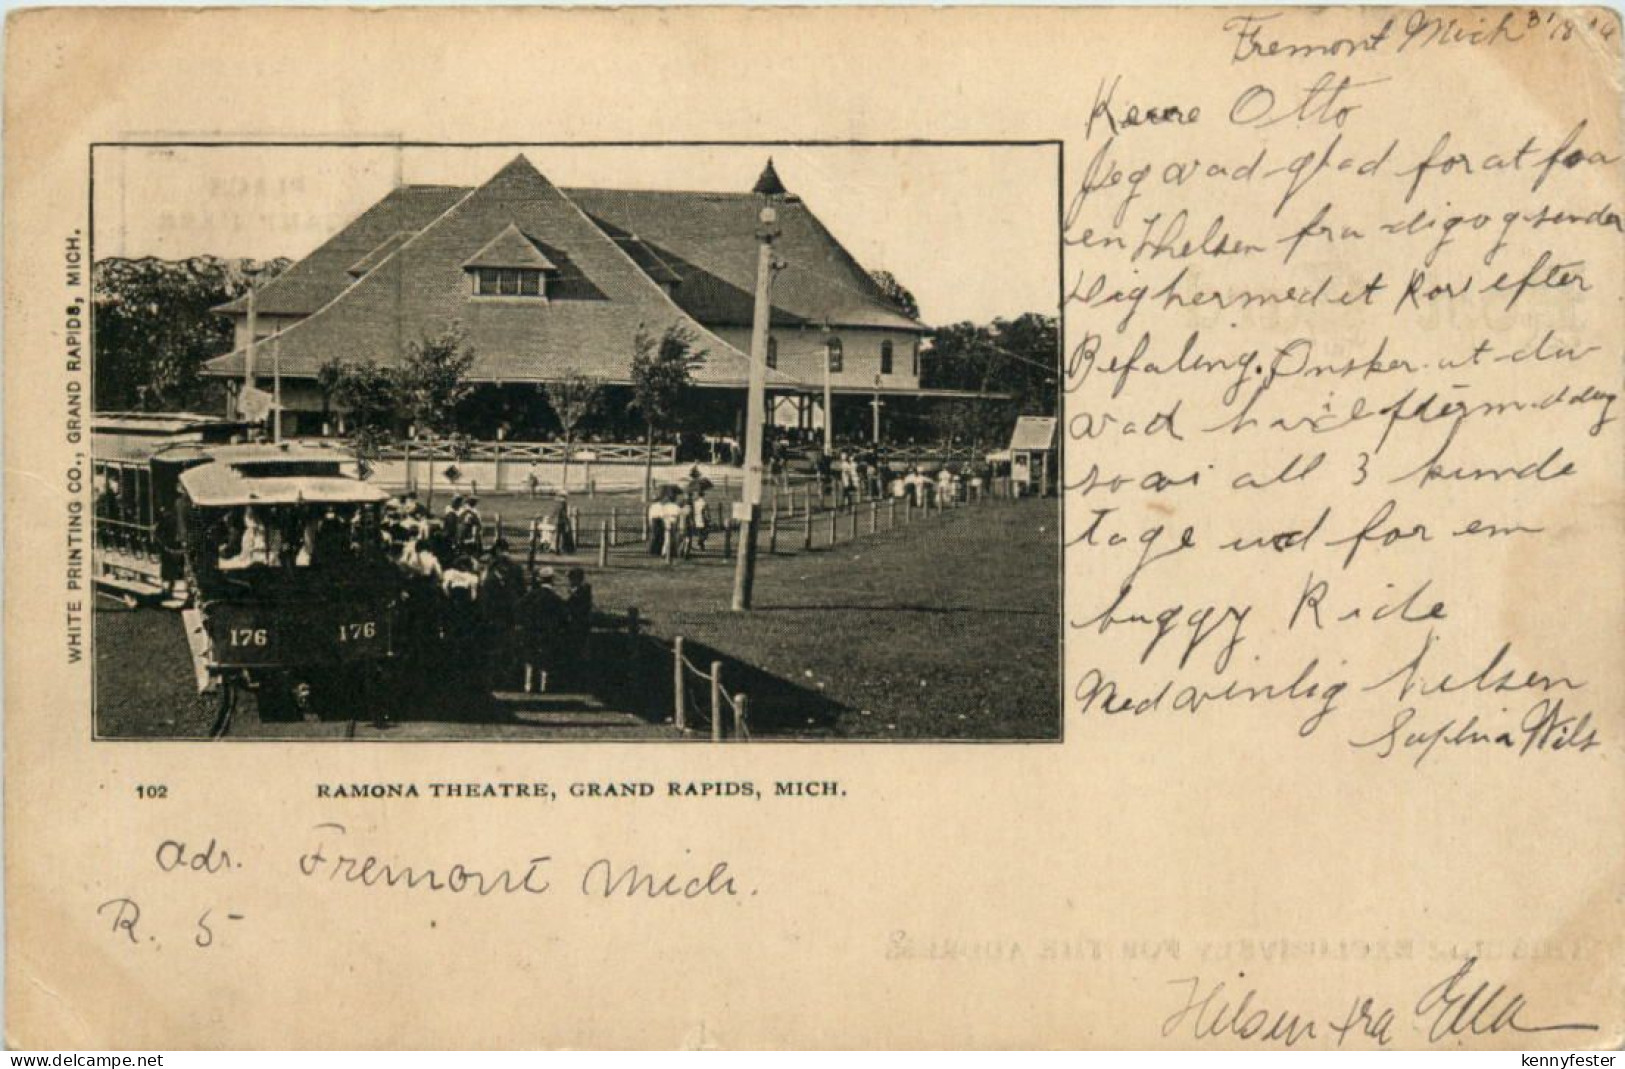 Fremont Mich
Kære Otto
Jeg vad glad for at faa
en Hhelsen fra dig og sender
Dig hermed et Kort efter
Befaling. Ønsker at du
vad her i eftermiddag
so vi all 3 kunde
tage ud for em
buggy Ride
Med vinlig hilsen
Sophia Wils
WHITE PRINTING CO., GRAND RAPIDS, MICH.
176 176
102 RAMONA THEATRE, GRAND RAPIDS, MICH.
adr. Fremont Mich.
R. 5
Hilsen fra Ella
delcampe.net
kennyfester